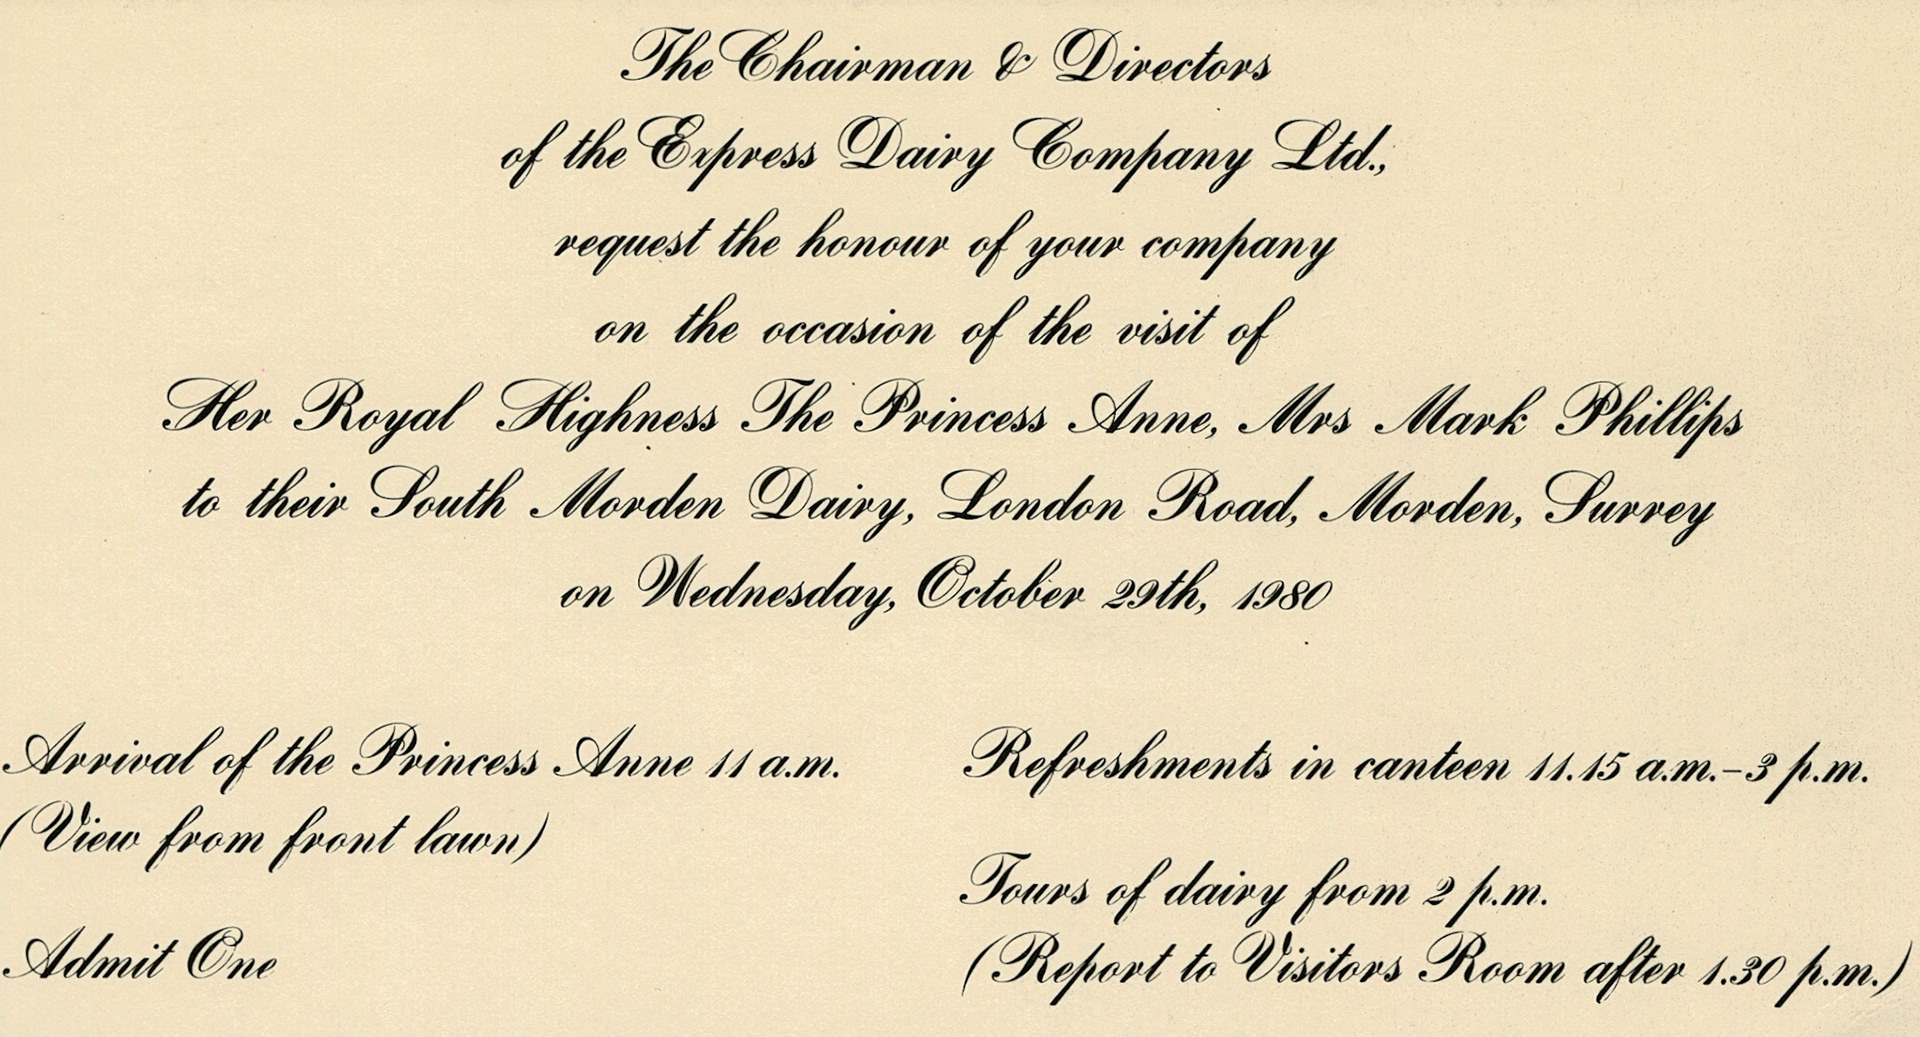 The Chairman & Directors
of the Express Dairy Company Ltd.,
request the honour of your company
on the occasion of the visit of
Her Royal Highness The Princess Anne, Mrs Mark Phillips
to their South Morden Dairy, London Road, Morden, Surrey
on Wednesday, October 29th, 1980
Arrival of the Princess Anne 11 a.m.
(View from front lawn)
Admit One
Refreshments in canteen 11.15 a.m.–3 p.m.
Tours of dairy from 2 p.m.
(Report to Visitors Room after 1.30 p.m.)